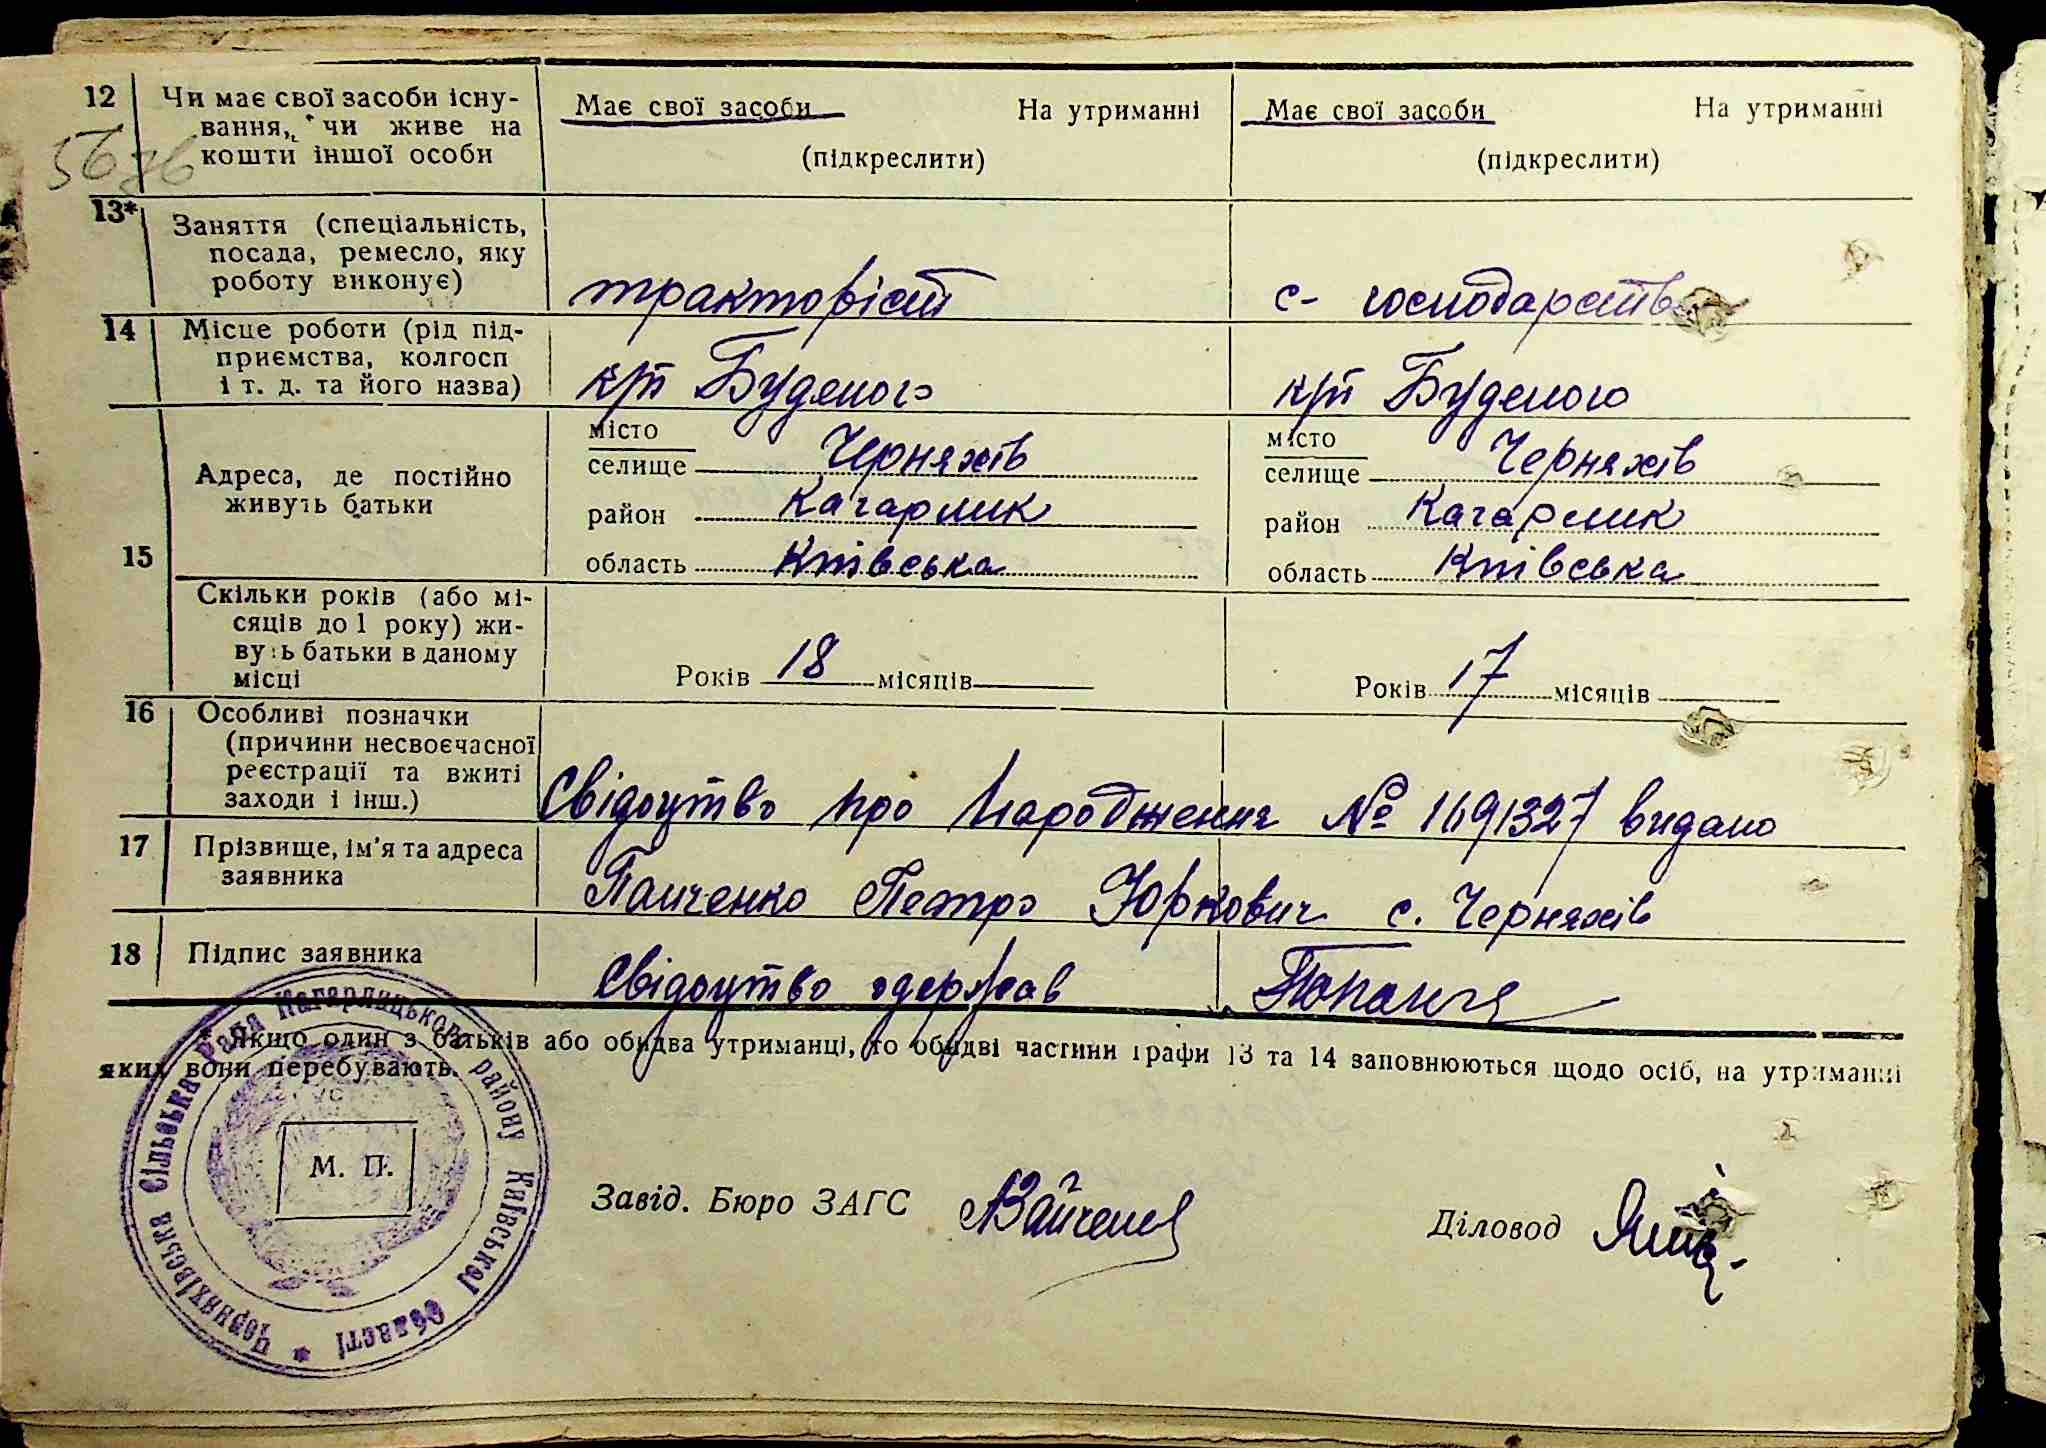 12 Чи має свої засоби існу-
вання, чи живе на
кошти іншої особи
Має свої засоби На утриманні
(підкреслити)
Має свої засоби На утриманні
(підкреслити)
13* Заняття (спеціальність,
посада, ремесло, яку
роботу виконує)
тракторіст
с- господарство
14 Місце роботи (рід під-
приємства, колгосп
і т. д. та його назва)
к/п Буденого
к/п Буденого
15 Адреса, де постійно
живуть батьки
місто
селище Черняхів
район Кагарлик
область Київська
місто
селище Черняхів
район Кагарлик
область Київська
Скільки років (або мі-
сяців до 1 року) жи-
вуть батьки в даному
місці
Років 18 місяців
Років 17 місяців
16 Особливі позначки
(причини несвоєчасної
реєстрації та вжиті
заходи і інш.)
Свідоцтво про народження № 1691327 видано
17 Прізвище, ім'я та адреса
заявника
Панченко Петро Юркович с. Черняхів
18 Підпис заявника
Свідоцтво одержав
* Якщо один з батьків або обидва утриманці, то обидві частини графи 13 та 14 заповнюються щодо осіб, на утриманні
яких вони перебувають.
Черняхівська Сільська Рада Кагарлицького району Київської Області
М. П.
Завід. Бюро ЗАГС
Діловод